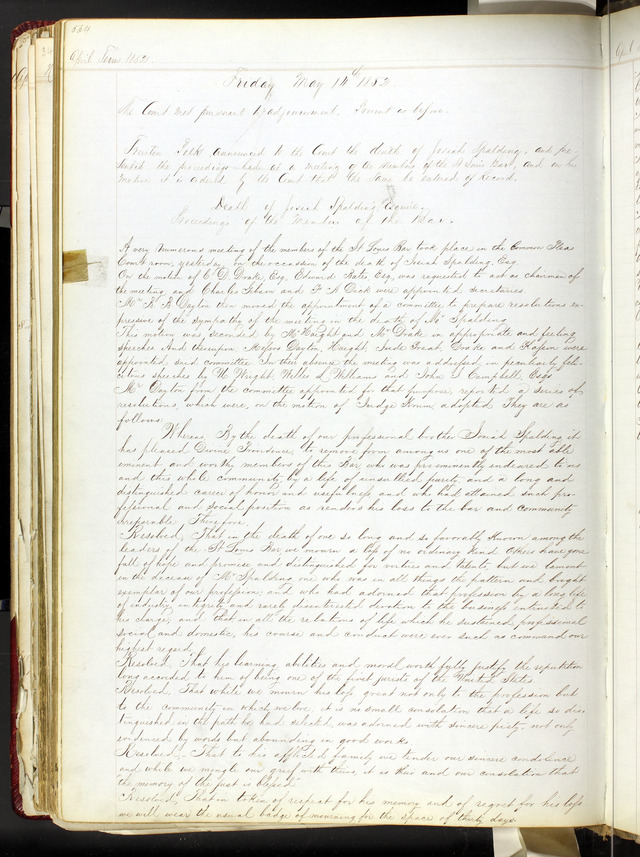 564
April Term 1852.
Friday May 14th 1852
The Court met pursuant to adjournment. Present as before.
Trusten Polk announced to the Court the death of Josiah Spalding, and pre-
sented the proceedings had at a meeting of the Members of the St Louis Bar, and on his
motion it is ordered by the Court that the same be entered of Record.
Death of Josiah Spalding Esquire.
Proceedings of the Members of the Bar.
A very numerous meeting of the members of the St Louis Bar took place in the Common Pleas
Court room, yesterday, on the occasion of the death of Josiah Spalding, Esq.
On the motion of C D Drake, Esq, Edward Bates Esq, was requested to act as chairman of
the meeting and Charles and F A Dick were appointed secretaries
Mr Dayton then moved the appointment of a committee to prepare resolutions ex-
pressive of the sympathy of the meeting in the death of Mr Spalding
The motion was seconded by Mr Haight and Mr Drake in appropriate and feeling
speeches And thereupon Messrs Dayton, Haight, Treat, and were
appointed, said committee In their absence the meeting was addressed in peculiarly feli-
citous speeches by Wright, Williams and John Campbell, Esqs
Mr Dayton from the committee appointed for that purpose, reported a series of
resolutions, which were, on the motion of Judge Krum adopted. They are as
follows
Whereas, By the death of our professional brother Josiah Spalding it
has pleased Devine Providence, to remove from among us one of the most able
eminent and worthy members of the Bar who was preeminently endeared to us
and this whole community by a life of unsullied purity and a long and
distinguished career of honor and usefulness and who had attained such pro-
fessional and social position as renders his loss to the bar and community
irreparable Therefore,
Resolved, That in the death of one so long and so favorably known among the
leaders of the St Louis Bar we mourn a loss of no ordinary kind Others have gone
full of life and promise and distinguished for virtues and talents, but we lament
in the decease of Mr Spalding one who was in all things the pattern and bright
exemplar of our profession; and who had adorned that profession by a long life
of industry, integrity and rarely disinterested devotion to the business entrusted to
his charge; and that in all the relations of life which he sustained, professional
social and domestic, his course and conduct were ever such as command our
highest regard.
Resolved, That his learning abilities and moral worth fully justify the reputation
long accorded to him of being one of the first jurists of the United States
Resolved, That while we mourn his loss great not only to the profession but
to the community in which we live, it is no small consolation that a life so dis-
tinguished in the path he had selected, was adorned with sincere piety, not only
evidenced by words but abounding in good works.
Resolved, That to his afflicted family we tender our sincere condolence
and while we mingle our grief with theirs, it is their and our consolation that
the memory of the just is blessed.
Resolved, That in token of respect for his memory and of regret for his loss
we will wear the usual badge of mourning for the space of thirty days.